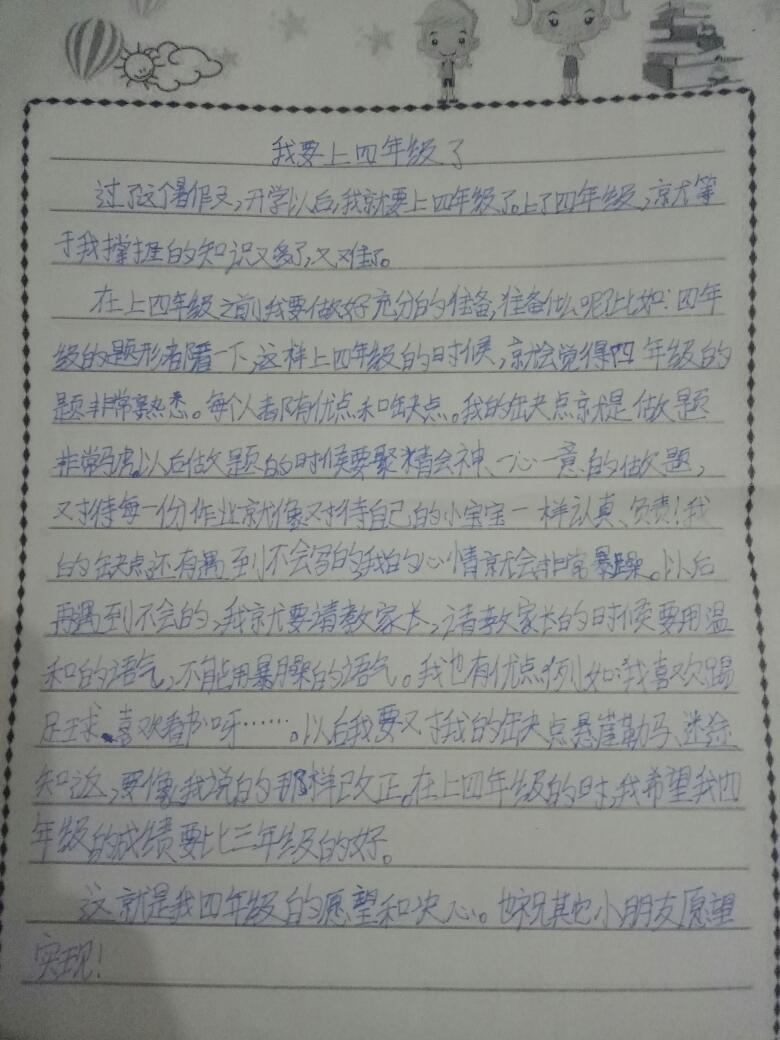 我要上四年级了
过了这个暑假,开学以后,我就要上四年级了。上了四年级,就等
于我掌握的知识又多了,又难了。
在上四年级之前,我要做好充分的准备,准备什么呢?比如:四年
级的题形都看一下,这样上四年级的时候,就会觉得四年级的
题非常熟悉。每个人都有优点和缺点。我的缺点就是做题
非常马虎。以后做题的时候要聚精会神、一心一意的做题,
对待每一份作业就像对待自己的小宝宝一样认真、负责!我
的缺点还有遇到不会写的我的心情就会非常暴躁。以后
再遇到不会的,我就要请教家长,请教家长的时候要用温
和的语气,不能用暴躁的语气。我也有优点例如:我喜欢踢
足球、喜欢看书呀……。以后我要对我的缺点悬崖勒马、迷途
知返,要像我说的那样改正。在上四年级的时,我希望我四
年级的成绩要比三年级的好。
这就是我四年级的愿望和决心。也祝其它小朋友愿望
实现!